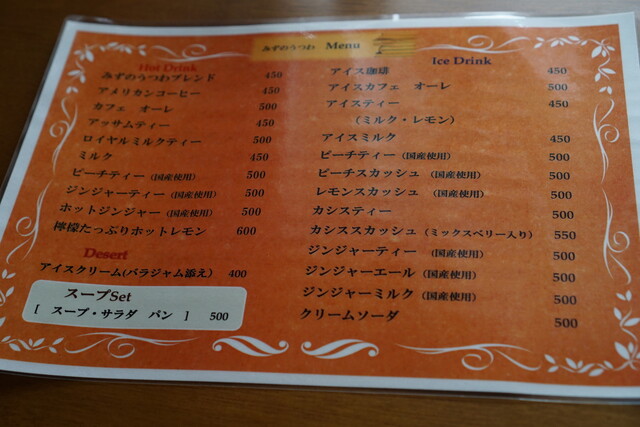 みずのうつわ Menu
Hot Drink
みずのうつわブレンド 450
アメリカンコーヒー 450
カフェ オーレ 500
アッサムティー 450
ロイヤルミルクティー 500
ミルク 450
ピーチティー (国産使用) 500
ジンジャーティー (国産使用) 500
ホットジンジャー (国産使用) 500
檸檬たっぷりホットレモン 600
Desert
アイスクリーム(バラジャム添え) 400
スープSet
[ スープ・サラダ パン ] 500
Ice Drink
アイス珈琲 450
アイスカフェ オーレ 500
アイスティー 450
(ミルク・レモン)
アイスミルク 450
ピーチティー (国産使用) 500
ピーチスカッシュ (国産使用) 500
レモンスカッシュ (国産使用) 500
カシスティー 500
カシススカッシュ (ミックスベリー入り) 550
ジンジャーティー (国産使用) 500
ジンジャーエール (国産使用) 500
ジンジャーミルク (国産使用) 500
クリームソーダ 500